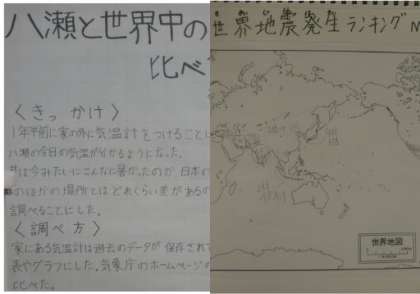 八瀬と世界中の
比べ
〈きっかけ〉
1年半前に家の外に気温計をつけることに
八瀬の今日の気温が分かるようになった。
昔は今みたいにこんなに暑かったのか、日本の
のほかの場所とはどれくらい差があるの
調べることにした。
〈調べ方〉
家にある気温計は過去のデータが保存されて
表やグラフにした。気象庁のホームページの
比べた。
世界地震発生ランキング
世界地図